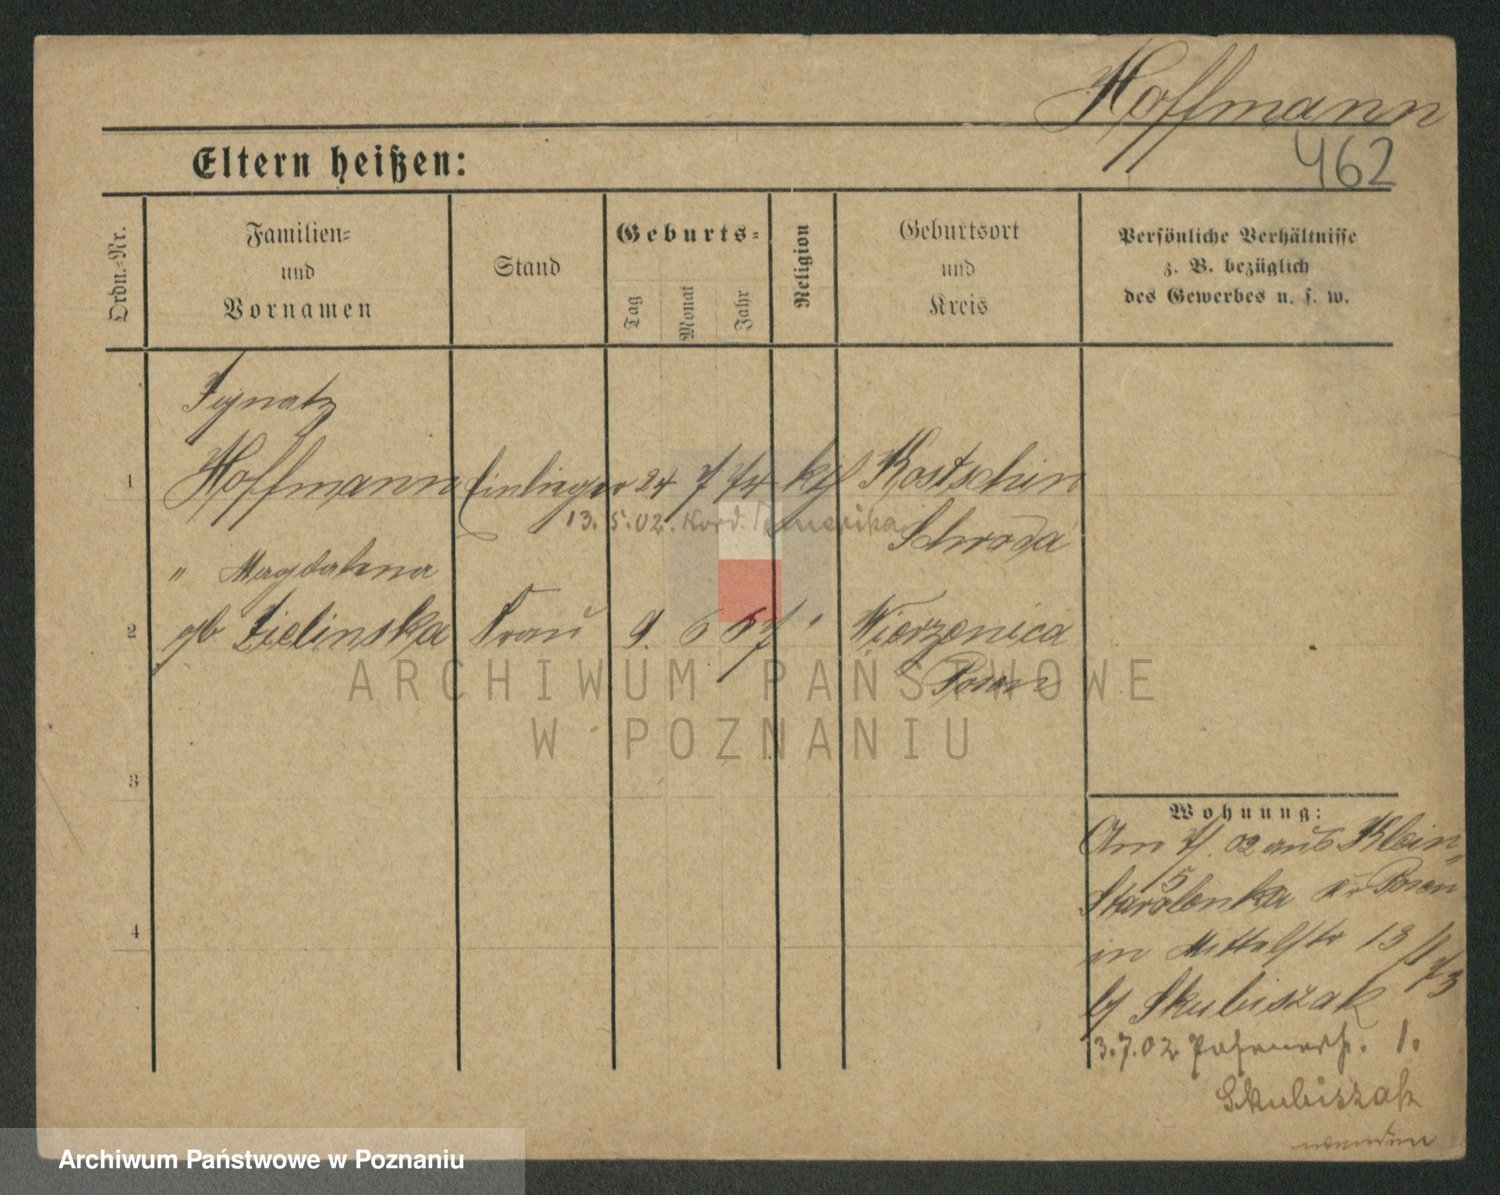 Hoffmann
462
Eltern heißen:
Ordn.-Nr.
Familien-
und
Vornamen
Stand
Geburts-
Tag
Monat
Jahr
Religion
Geburtsort
und
Kreis
Persönliche Verhältnisse
z. B. bezüglich
des Gewerbes u. s. w.
Ignatz
1 Hoffmann Einlieger 24 7 74 kth Kostschin
13. 5. 02. Nord. Amerika
Schroda
" Magdalena
2 gb Zielinska Frau 9. 6 67 " Wierzenica
Posen
ARCHIWUM PAŃSTWOWE
W POZNANIU
3
Wohnung:
Am 7/5 02 aus Klein
Starolenka Kr Posen
4
in Mittelstr 13
b/ Skubiszak
3.7.02 1.
Skubiszak
wenden
Archiwum Państwowe w Poznaniu